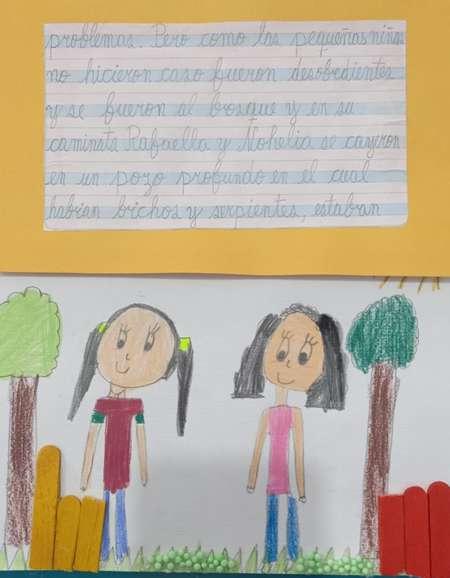 problemas. Pero como las pequeñas niñas
no hicieron caso fueron desobedientes
y se fueron al bosque y en su
caminata Rafaella y Nohelia se cayeron
en un pozo profundo en el cual
habian bichos y serpientes, estaban